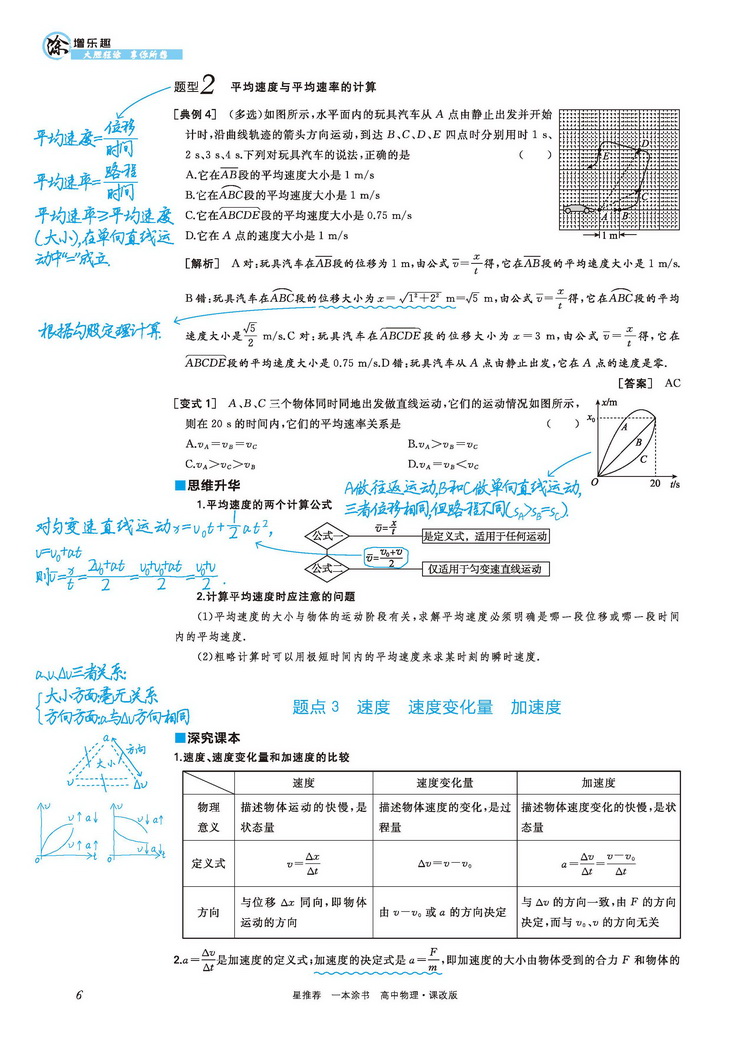 涂 增乐趣
大胆短涂 享你所想
题型2 平均速度与平均速率的计算
[典例4] (多选)如图所示,水平面内的玩具汽车从 A 点由静止出发并开始
计时,沿曲线轨迹的箭头方向运动,到达 B、C、D、E 四点时分别用时 1 s、
2 s、3 s、4 s.下列对玩具汽车的说法,正确的是 ( )
A.它在AB段的平均速度大小是 1 m/s
B.它在ABC段的平均速度大小是 1 m/s
C.它在ABCDE段的平均速度大小是 0.75 m/s
D.它在 A 点的速度大小是 1 m/s
E D C A B
1 m
平均速度=位移/时间
平均速率=路程/时间
平均速率≥平均速度
(大小),在单向直线运
动中"="成立.
[解析] A 对:玩具汽车在AB段的位移为 1 m,由公式 v̄=x/t得,它在AB段的平均速度大小是 1 m/s.
B 错:玩具汽车在ABC段的位移大小为 x=√(1²+2²) m=√5 m,由公式 v̄=x/t得,它在ABC段的平均
速度大小是√5/2 m/s.C 对:玩具汽车在ABCDE段的位移大小为 x=3 m,由公式 v̄=x/t得,它在
ABCDE段的平均速度大小是 0.75 m/s.D 错:玩具汽车从 A 点由静止出发,它在 A 点的速度是零.
根据勾股定理计算.
[答案] AC
[变式1] A、B、C 三个物体同时同地出发做直线运动,它们的运动情况如图所示,
则在 20 s 的时间内,它们的平均速率关系是 ( )
A.vA=vB=vC B.vA>vB=vC
C.vA>vC>vB D.vA=vB<vC
x/m x₀ A B C O 20 t/s
■思维升华
A做往返运动,B和C做单向直线运动,
三者位移相同,但路程不同(sA>sB=sC).
1.平均速度的两个计算公式
公式一 v̄=x/t 是定义式，适用于任何运动
公式二 v̄=(v₀+v)/2 仅适用于匀变速直线运动
对匀变速直线运动x=v₀t+1/2at²,
v=v₀+at
则v̄=x/t=(2v₀+at)/2=(v₀+v₀+at)/2=(v₀+v)/2.
2.计算平均速度时应注意的问题
(1)平均速度的大小与物体的运动阶段有关,求解平均速度必须明确是哪一段位移或哪一段时间
内的平均速度.
(2)粗略计算时可以用极短时间内的平均速度来求某时刻的瞬时速度.
a、v、Δv三者关系:
大小方面:毫无关系
方向方面:a与Δv方向相同
a 方向 大小 v Δv
v v↑a↓ v↑a↑ o t
v v↓a↑ v↓a↓ o t
题点 3 速度 速度变化量 加速度
■深究课本
1.速度、速度变化量和加速度的比较
速度 速度变化量 加速度
物理意义 描述物体运动的快慢,是状态量 描述物体速度的变化,是过程量 描述物体速度变化的快慢,是状态量
定义式 v=Δx/Δt Δv=v-v₀ a=Δv/Δt=(v-v₀)/Δt
方向 与位移 Δx 同向,即物体运动的方向 由 v-v₀ 或 a 的方向决定 与 Δv 的方向一致,由 F 的方向决定,而与 v₀、v 的方向无关
2.a=Δv/Δt是加速度的定义式;加速度的决定式是 a=F/m,即加速度的大小由物体受到的合力 F 和物体的
6
星推荐 一本涂书 高中物理·课改版